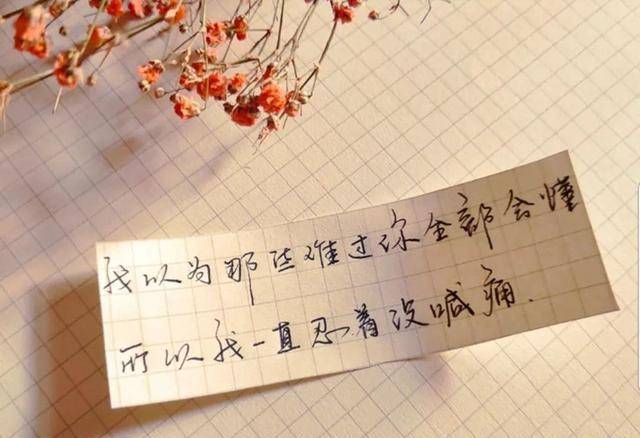 我以为那些难过你全部会懂
所以我一直忍着没喊痛.